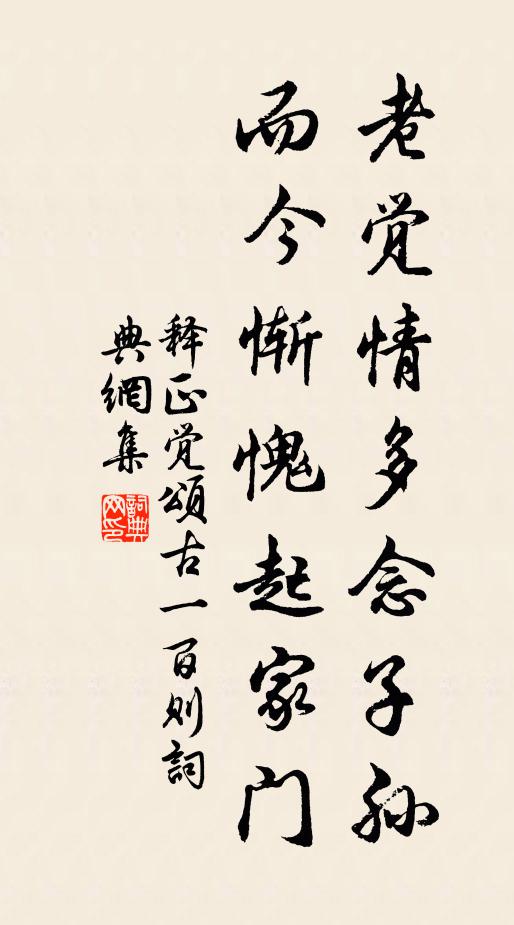 老觉情多念子孙
而今惭愧起家门
释正觉頌古一百则詞
典網集
詞典
网印